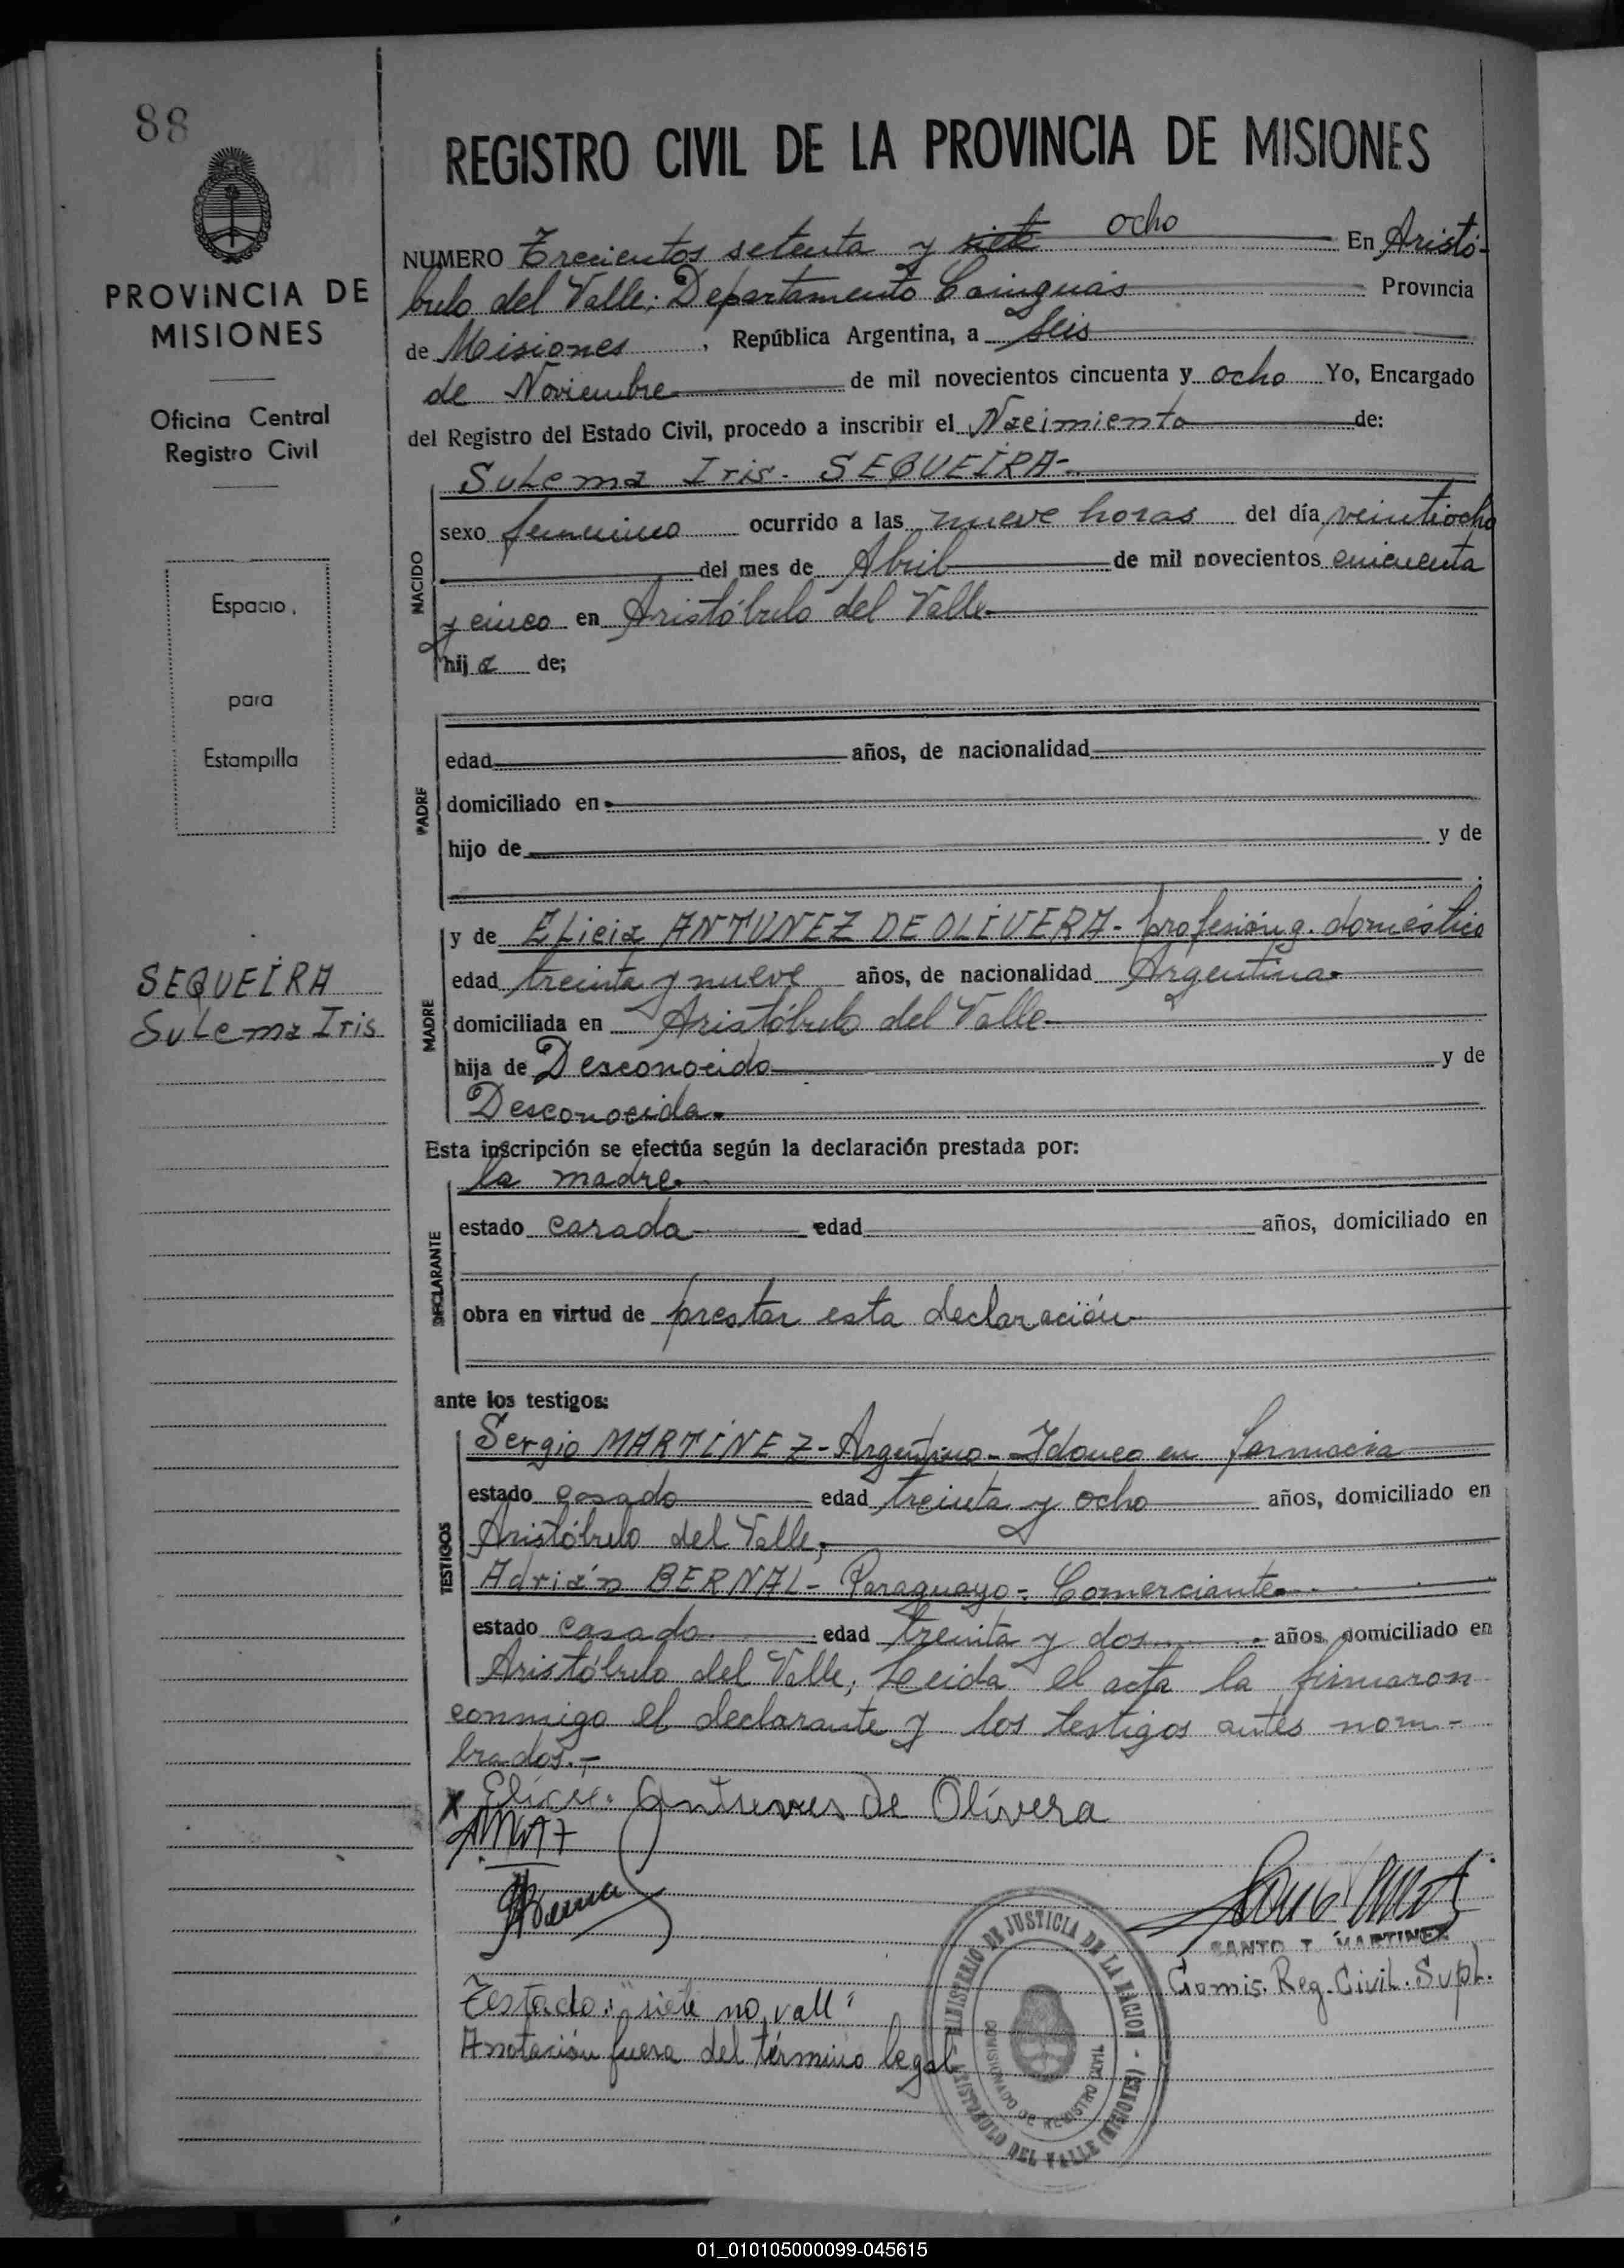 88
REGISTRO CIVIL DE LA PROVINCIA DE MISIONES
PROVINCIA DE
MISIONES
Oficina Central
Registro Civil
Espacio
para
Estampilla
SEQUEIRA
Sulema Iris
NUMERO Trecientos setenta y siete ocho En Aristó-
bulo del Valle; Departamento Cainguás Provincia
de Misiones, República Argentina, a seis
de Noviembre de mil novecientos cincuenta y ocho Yo, Encargado
del Registro del Estado Civil, procedo a inscribir el Nacimiento de:
Sulema Iris. SEQUEIRA-
NACIDO
sexo femenino ocurrido a las nueve horas del día veintiocho
del mes de Abril de mil novecientos cincuenta
y cinco en Aristóbulo del Valle
hija de;
PADRE
edad años, de nacionalidad
domiciliado en
hijo de y de
MADRE
y de Elicia ANTUNEZ DE OLIVERA- profesión q. doméstico
edad treinta y nueve años, de nacionalidad Argentina
domiciliada en Aristóbulo del Valle
hija de Desconocido y de
Desconocida
Esta inscripción se efectúa según la declaración prestada por:
la madre
DECLARANTE
estado casada edad años, domiciliado en
obra en virtud de prestar esta declaración
ante los testigos:
TESTIGOS
Sergio MARTINEZ - Argentino - Idoneo en farmacia
estado casado edad treinta y ocho años, domiciliado en
Aristóbulo del Valle;
Adrián BERNAL- Paraguayo- Comerciante
estado casado edad treinta y dos años, domiciliado en
Aristóbulo del Valle; Leida el acta la firmaron
conmigo el declarante y los testigos antes nom-
brados.-
x Elicia de Olivera
SANTO T. MARTINEZ
Comis. Reg. Civil. Supl.
Testado: "siete no vall"
Anotación fuera del término legal
MINISTERIO DE JUSTICIA DE LA NACION - ARISTOBULO DEL VALLE (MISIONES)
COMISIONADO DE REGISTRO CIVIL
01_010105000099-045615